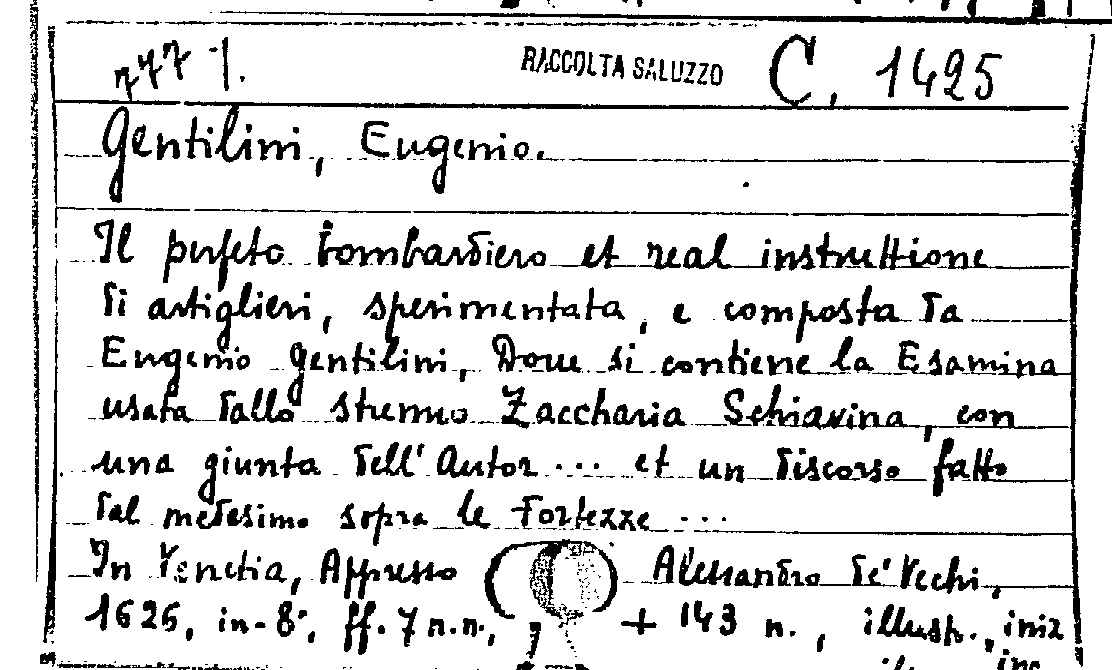 777-1. RACCOLTA SALUZZO C. 1425
Gentilini, Eugenio.
Il perfeto bombardiero et real instruttione
di artiglieri, sperimentata, e composta da
Eugenio gentilini, Doue si contiene la Esamina
usata dallo strenuo Zaccharia Schiavina, con
una giunta dell'Autor ... et un discorso fatto
dal medesimo sopra le fortezze ...
In Venetia, Appresso Alessandro de' Vechi,
1626, in-8°, ff. 7 n.n., + 143 n., illustr., iniz